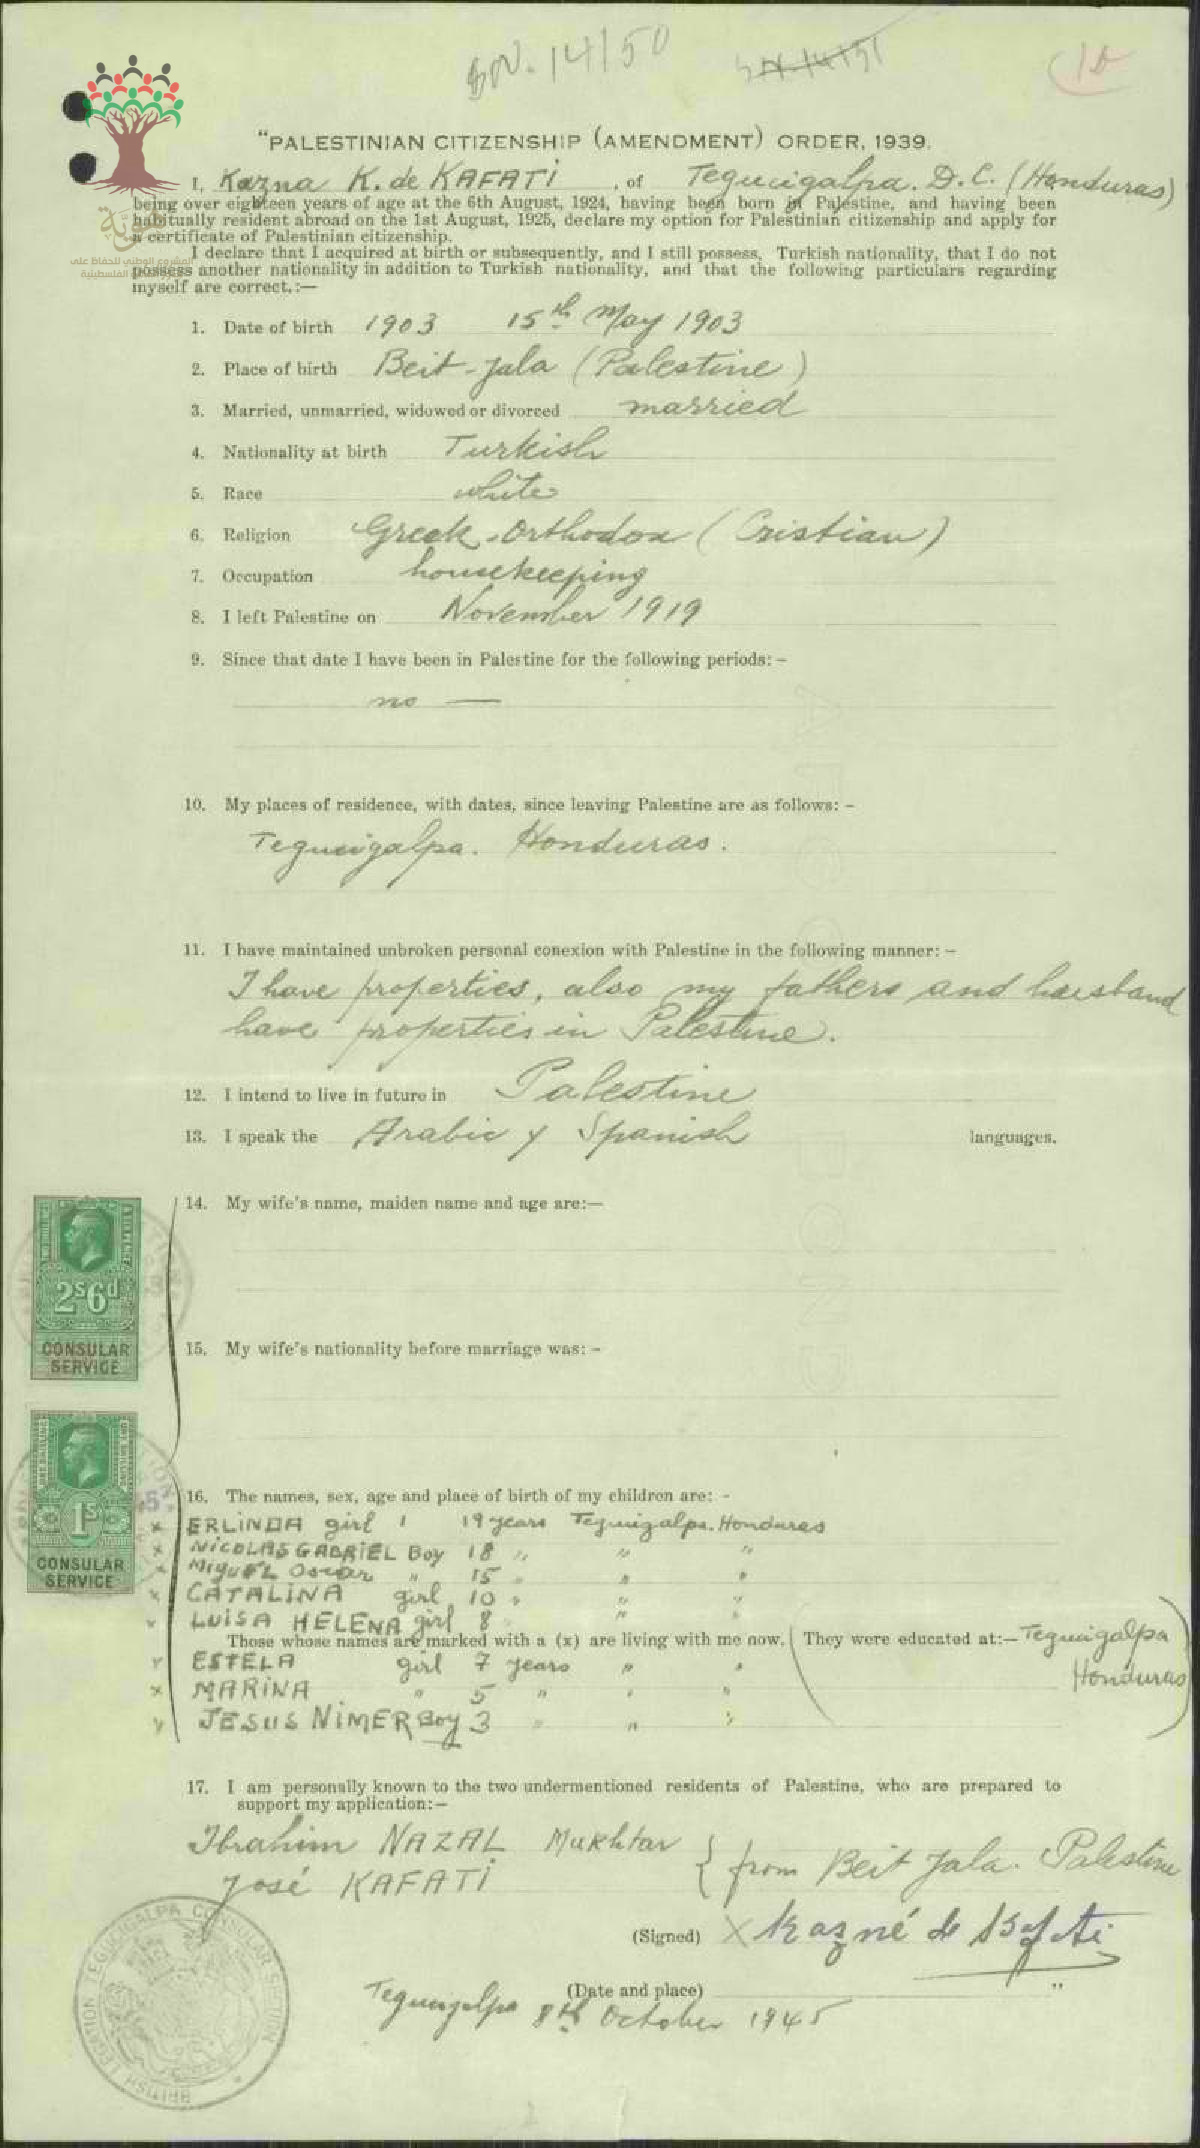 SN. 14/50
SN. 14/51
"PALESTINIAN CITIZENSHIP (AMENDMENT) ORDER, 1939.
I, Kazna K. de KAFATI , of Tegucigalpa. D.C. (Honduras)
being over eighteen years of age at the 6th August, 1924, having been born in Palestine, and having been
habitually resident abroad on the 1st August, 1925, declare my option for Palestinian citizenship and apply for
a certificate of Palestinian citizenship.
I declare that I acquired at birth or subsequently, and I still possess, Turkish nationality, that I do not
possess another nationality in addition to Turkish nationality, and that the following particulars regarding
myself are correct.:—
هوية
المشروع الوطني للحفاظ على
الفلسطينية
1. Date of birth 1903 15th May 1903
2. Place of birth Beit-Jala (Palestine)
3. Married, unmarried, widowed or divorced married
4. Nationality at birth Turkish
5. Race white
6. Religion Greek-Orthodox (Cristian)
7. Occupation housekeeping
8. I left Palestine on November 1919
9. Since that date I have been in Palestine for the following periods: –
no —
10. My places of residence, with dates, since leaving Palestine are as follows: –
Tegucigalpa. Honduras.
11. I have maintained unbroken personal conexion with Palestine in the following manner: –
I have properties, also my fathers and haisband
have properties in Palestine.
12. I intend to live in future in Palestine
13. I speak the Arabic y Spanish languages.
14. My wife's name, maiden name and age are:—
2s6d
CONSULAR
SERVICE
15. My wife's nationality before marriage was: –
1s
CONSULAR
SERVICE
16. The names, sex, age and place of birth of my children are: –
x ERLINDA girl 19 years Teguigalpa. Honduras
x NICOLAS GABRIEL Boy 18 " " "
x Miguel Oscar " 15 " " "
x CATALINA girl 10 " " "
x LUISA HELENA girl 8 " " "
Those whose names are marked with a (x) are living with me now. (They were educated at:— Tegucigalpa
Honduras)
x ESTELA girl 7 years " "
x MARINA " 5 " " "
x JESUS NIMER Boy 3 " " "
17. I am personally known to the two undermentioned residents of Palestine, who are prepared to
support my application:—
Ibrahim NAZAL Mukhtar
José KAFATI
{ from Beit Jala. Palestine
(Signed) X Kazné de Kafati
(Date and place) "
Tegucigalpa 8th October 1945
BRITISH LEGATION TEGUCIGALPA CONSULAR SECTION